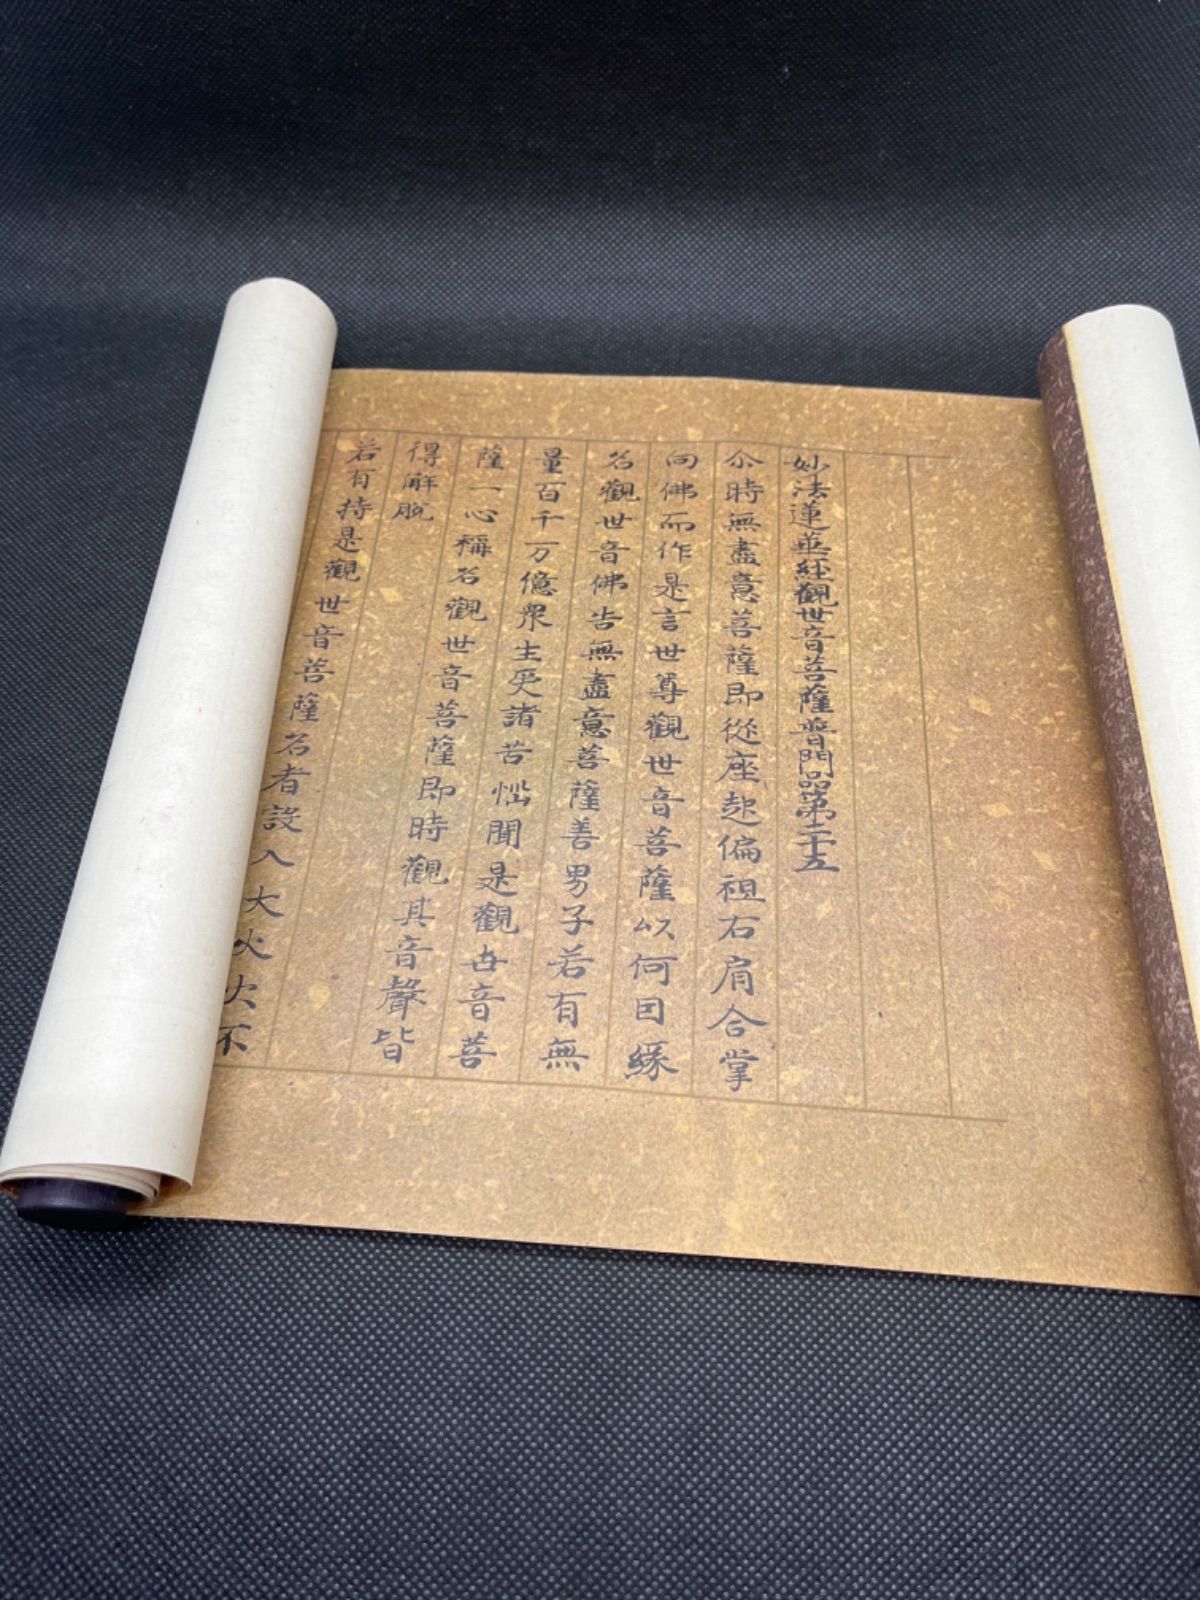 妙法蓮華經觀世音菩薩普門品第二十五
尒時無盡意菩薩即從座起偏袒右肩合掌
向佛而作是言世尊觀世音菩薩以何因緣
名觀世音佛告無盡意菩薩善男子若有無
量百千万億衆生受諸苦惱聞是觀世音菩
薩一心稱名觀世音菩薩即時觀其音聲皆
得解脫
若有持是觀世音菩薩名者設入大火火不